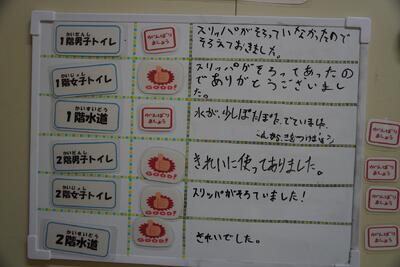 かいだんし
1階男子トイレ
がんばりましょう
スリッパがそろっていなかったので
そろえておきました。
かいじょし
1階女子トイレ
GOOD!
スリッパがそろってあったの
でありがとうございまし
た。
かいすいどう
1階水道
がんばりましょう
水が、少しぽたぽた、でていました。
かいだんし
2階男子トイレ
GOOD!
きれいに使ってありました。
かいじょし
2階女子トイレ
GOOD!
スリッパがそろっていました!
かいすいどう
2階水道
GOOD!
きれいでした。
がんばりましょう
がんばりましょう
がんばりましょう
がんばりましょう